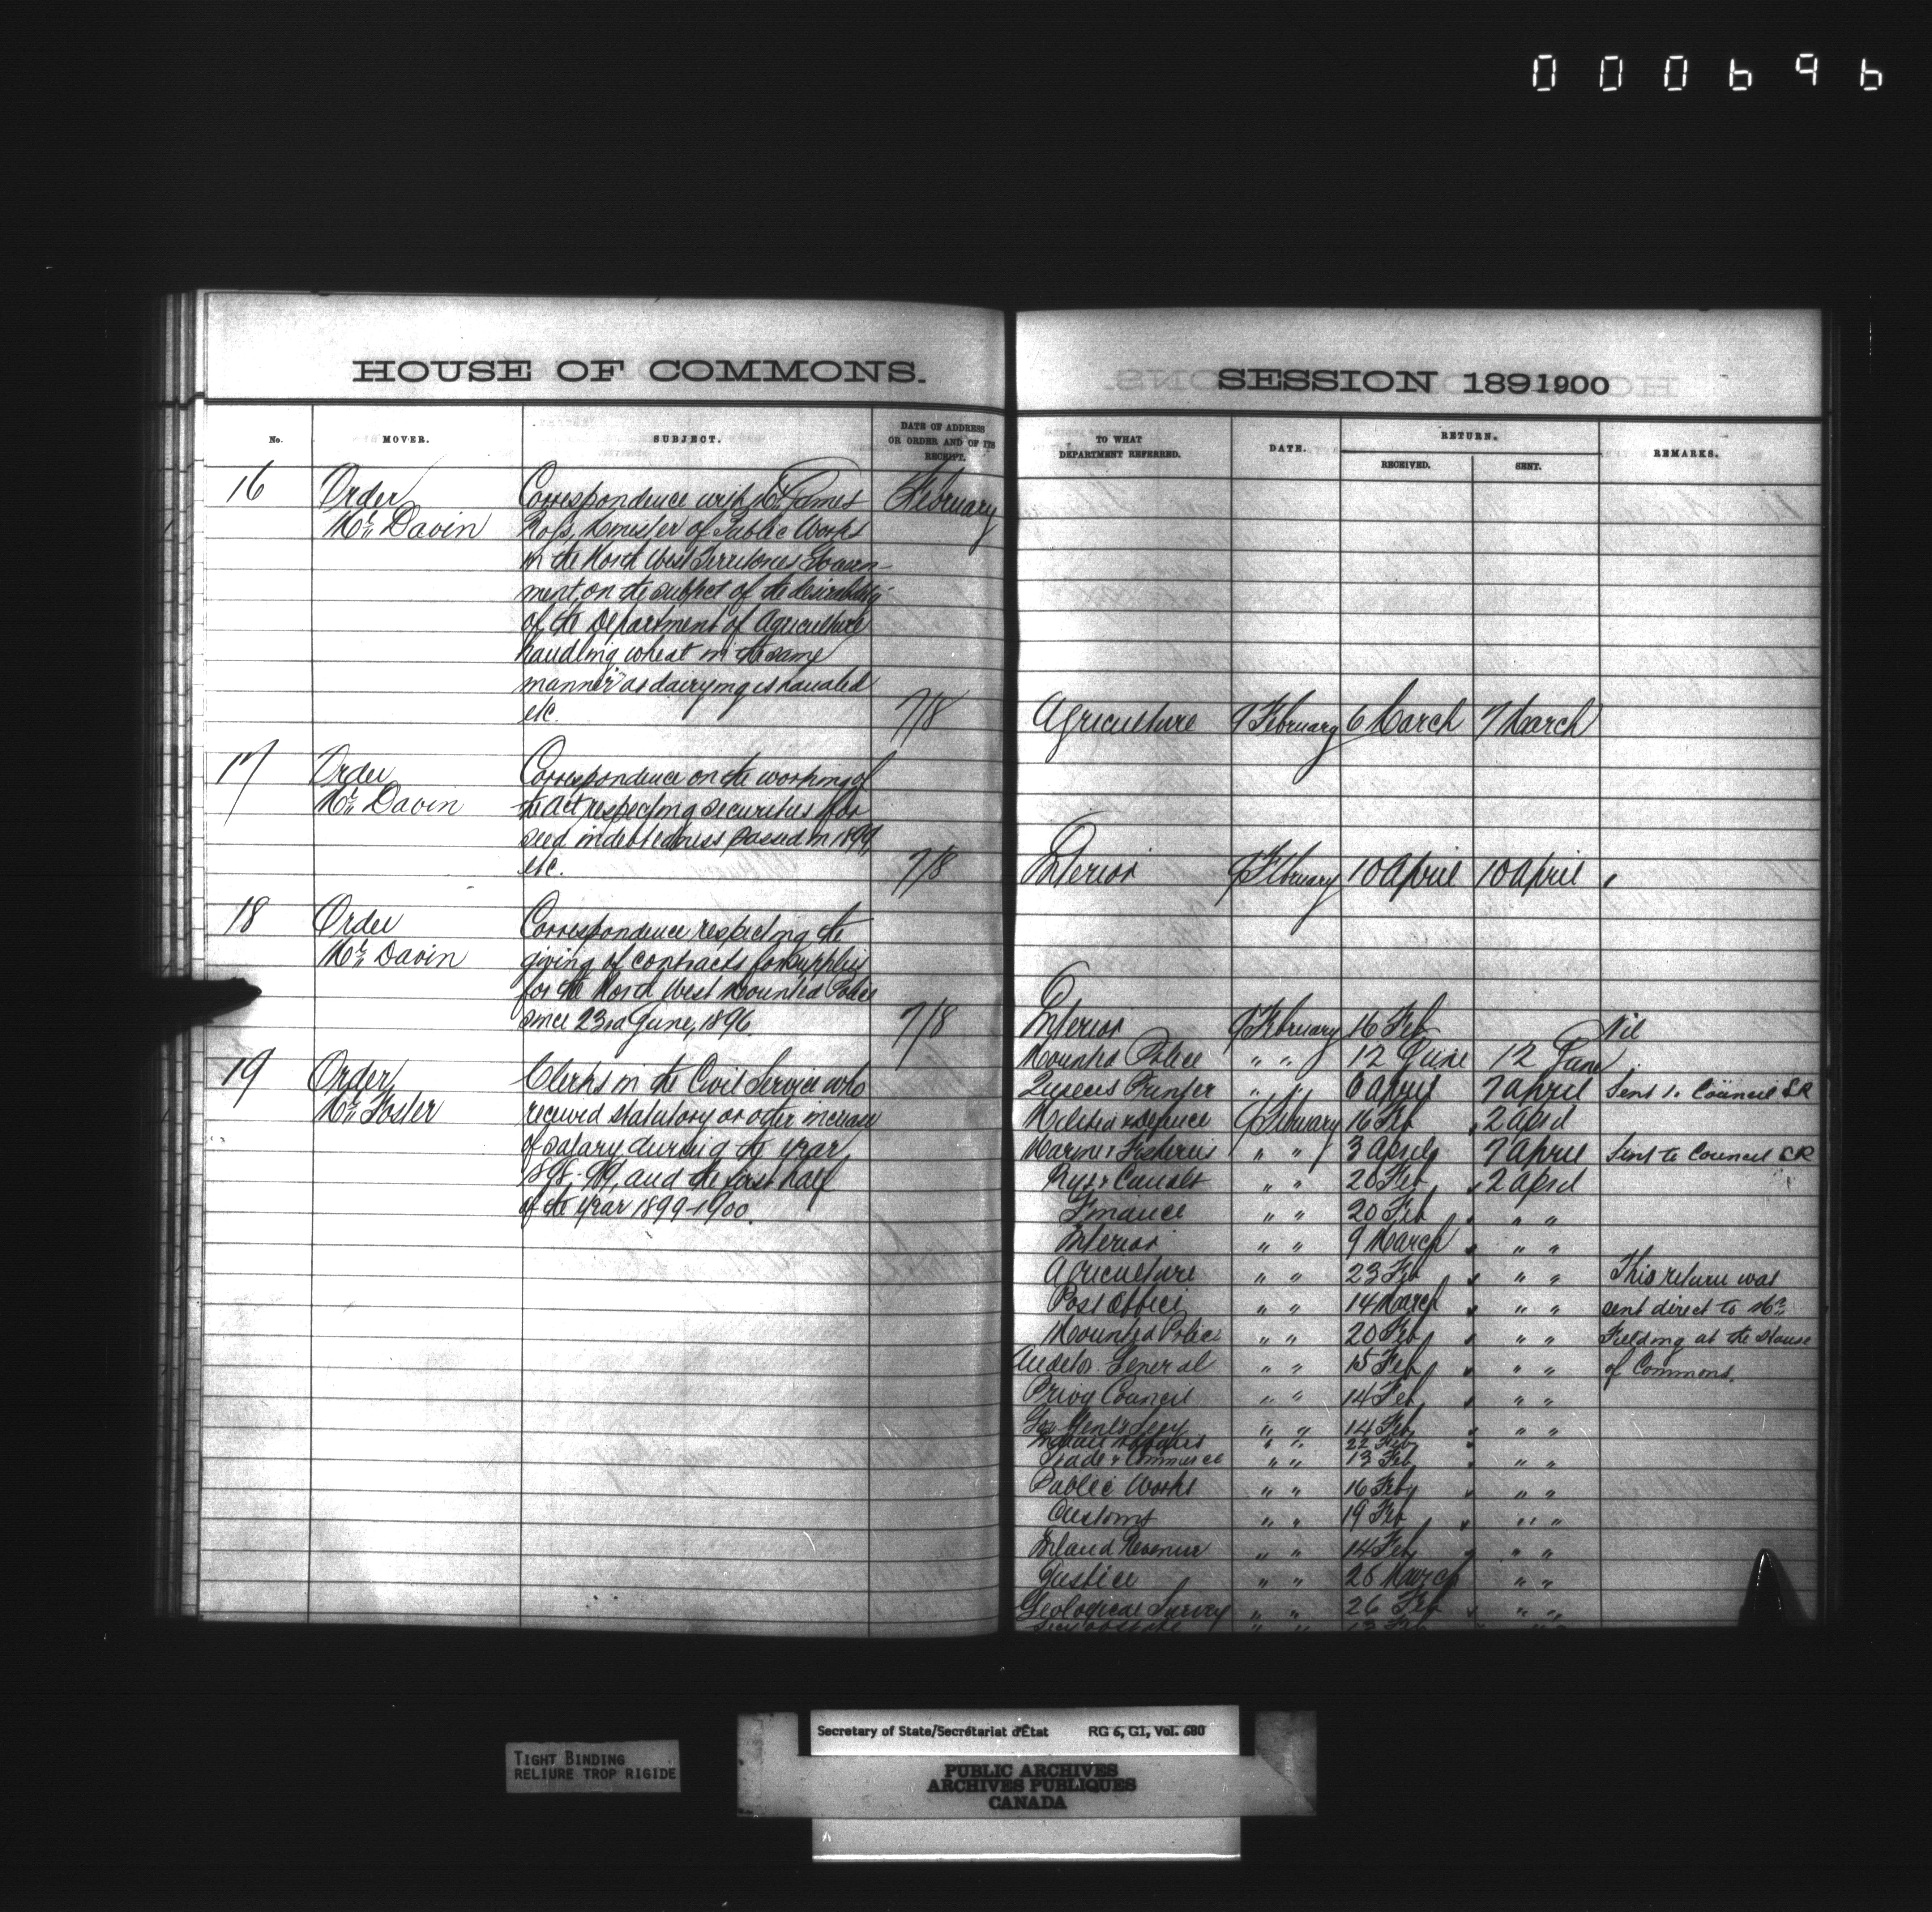 000696
HOUSE OF COMMONS.
No.
MOVER.
SUBJECT.
DATE OF ADDRESS
OR ORDER AND OF ITS
RECEIPT.
16
Order
Mr. Davin
Correspondence with Mr. James
Ross, Minister of Public Works
in the North West Territories Govern-
ment, on the subject of the desirability
of the Department of Agriculture
handling wheat in the same
manner as dairying is handled
etc.
February
7/8
17
Order
Mr. Davin
Correspondence on the working of
the Act respecting securities for
seed indebtedness passed in 1899,
etc.
7/8
18
Order
Mr. Davin
Correspondence respecting the
giving of contracts for supplies
for the North West Mounted Police
since 23rd June, 1896.
7/8
19
Order
Mr. Foster
Clerks in the Civil Service who
received statutory or other increase
of salary during the year
1898-99, and the first half
of the year 1899-1900.
SESSION 1891900
TO WHAT
DEPARTMENT REFERRED.
DATE.
RETURN.
RECEIVED.
SENT.
REMARKS.
Agriculture 9 February 6 March 7 March
Interior 9 February 10 April 10 April
Interior 9 February 16 Feb Nil
Mounted Police " " 12 June 12 June
Queens Printer " " 6 April 7 April Sent to Council SR
Militia & Defence 9 February 16 Feb 2 April
Marine & Fisheries " " 3 April 7 April Sent to Council SR
Rys & Canals " " 20 Feb 2 April
Finance " " 20 Feb " "
Interior " " 9 March " "
Agriculture " " 23 Feb " " This return was
Post Office " " 14 March " " sent direct to Mr.
Mounted Police " " 20 Feb " " Fielding at the House
Auditor General " " 15 Feb " " of Commons.
Privy Council " " 14 Feb " "
Gov Genl's Secy " " 14 Feb " "
Indian " " 22 Feb
Trade & Commerce " " 13 Feb " "
Public Works " " 16 Feb " "
Customs " " 19 Feb " "
Inland Revenue " " 14 Feb " "
Justice " " 28 March " "
Geological Survey " " 26 Feb " "
Secy of State " " 13 Feb " "
TIGHT BINDING
RELIURE TROP RIGIDE
Secretary of State/Secrétariat d'État RG 6, G1, Vol. 680
PUBLIC ARCHIVES
ARCHIVES PUBLIQUES
CANADA